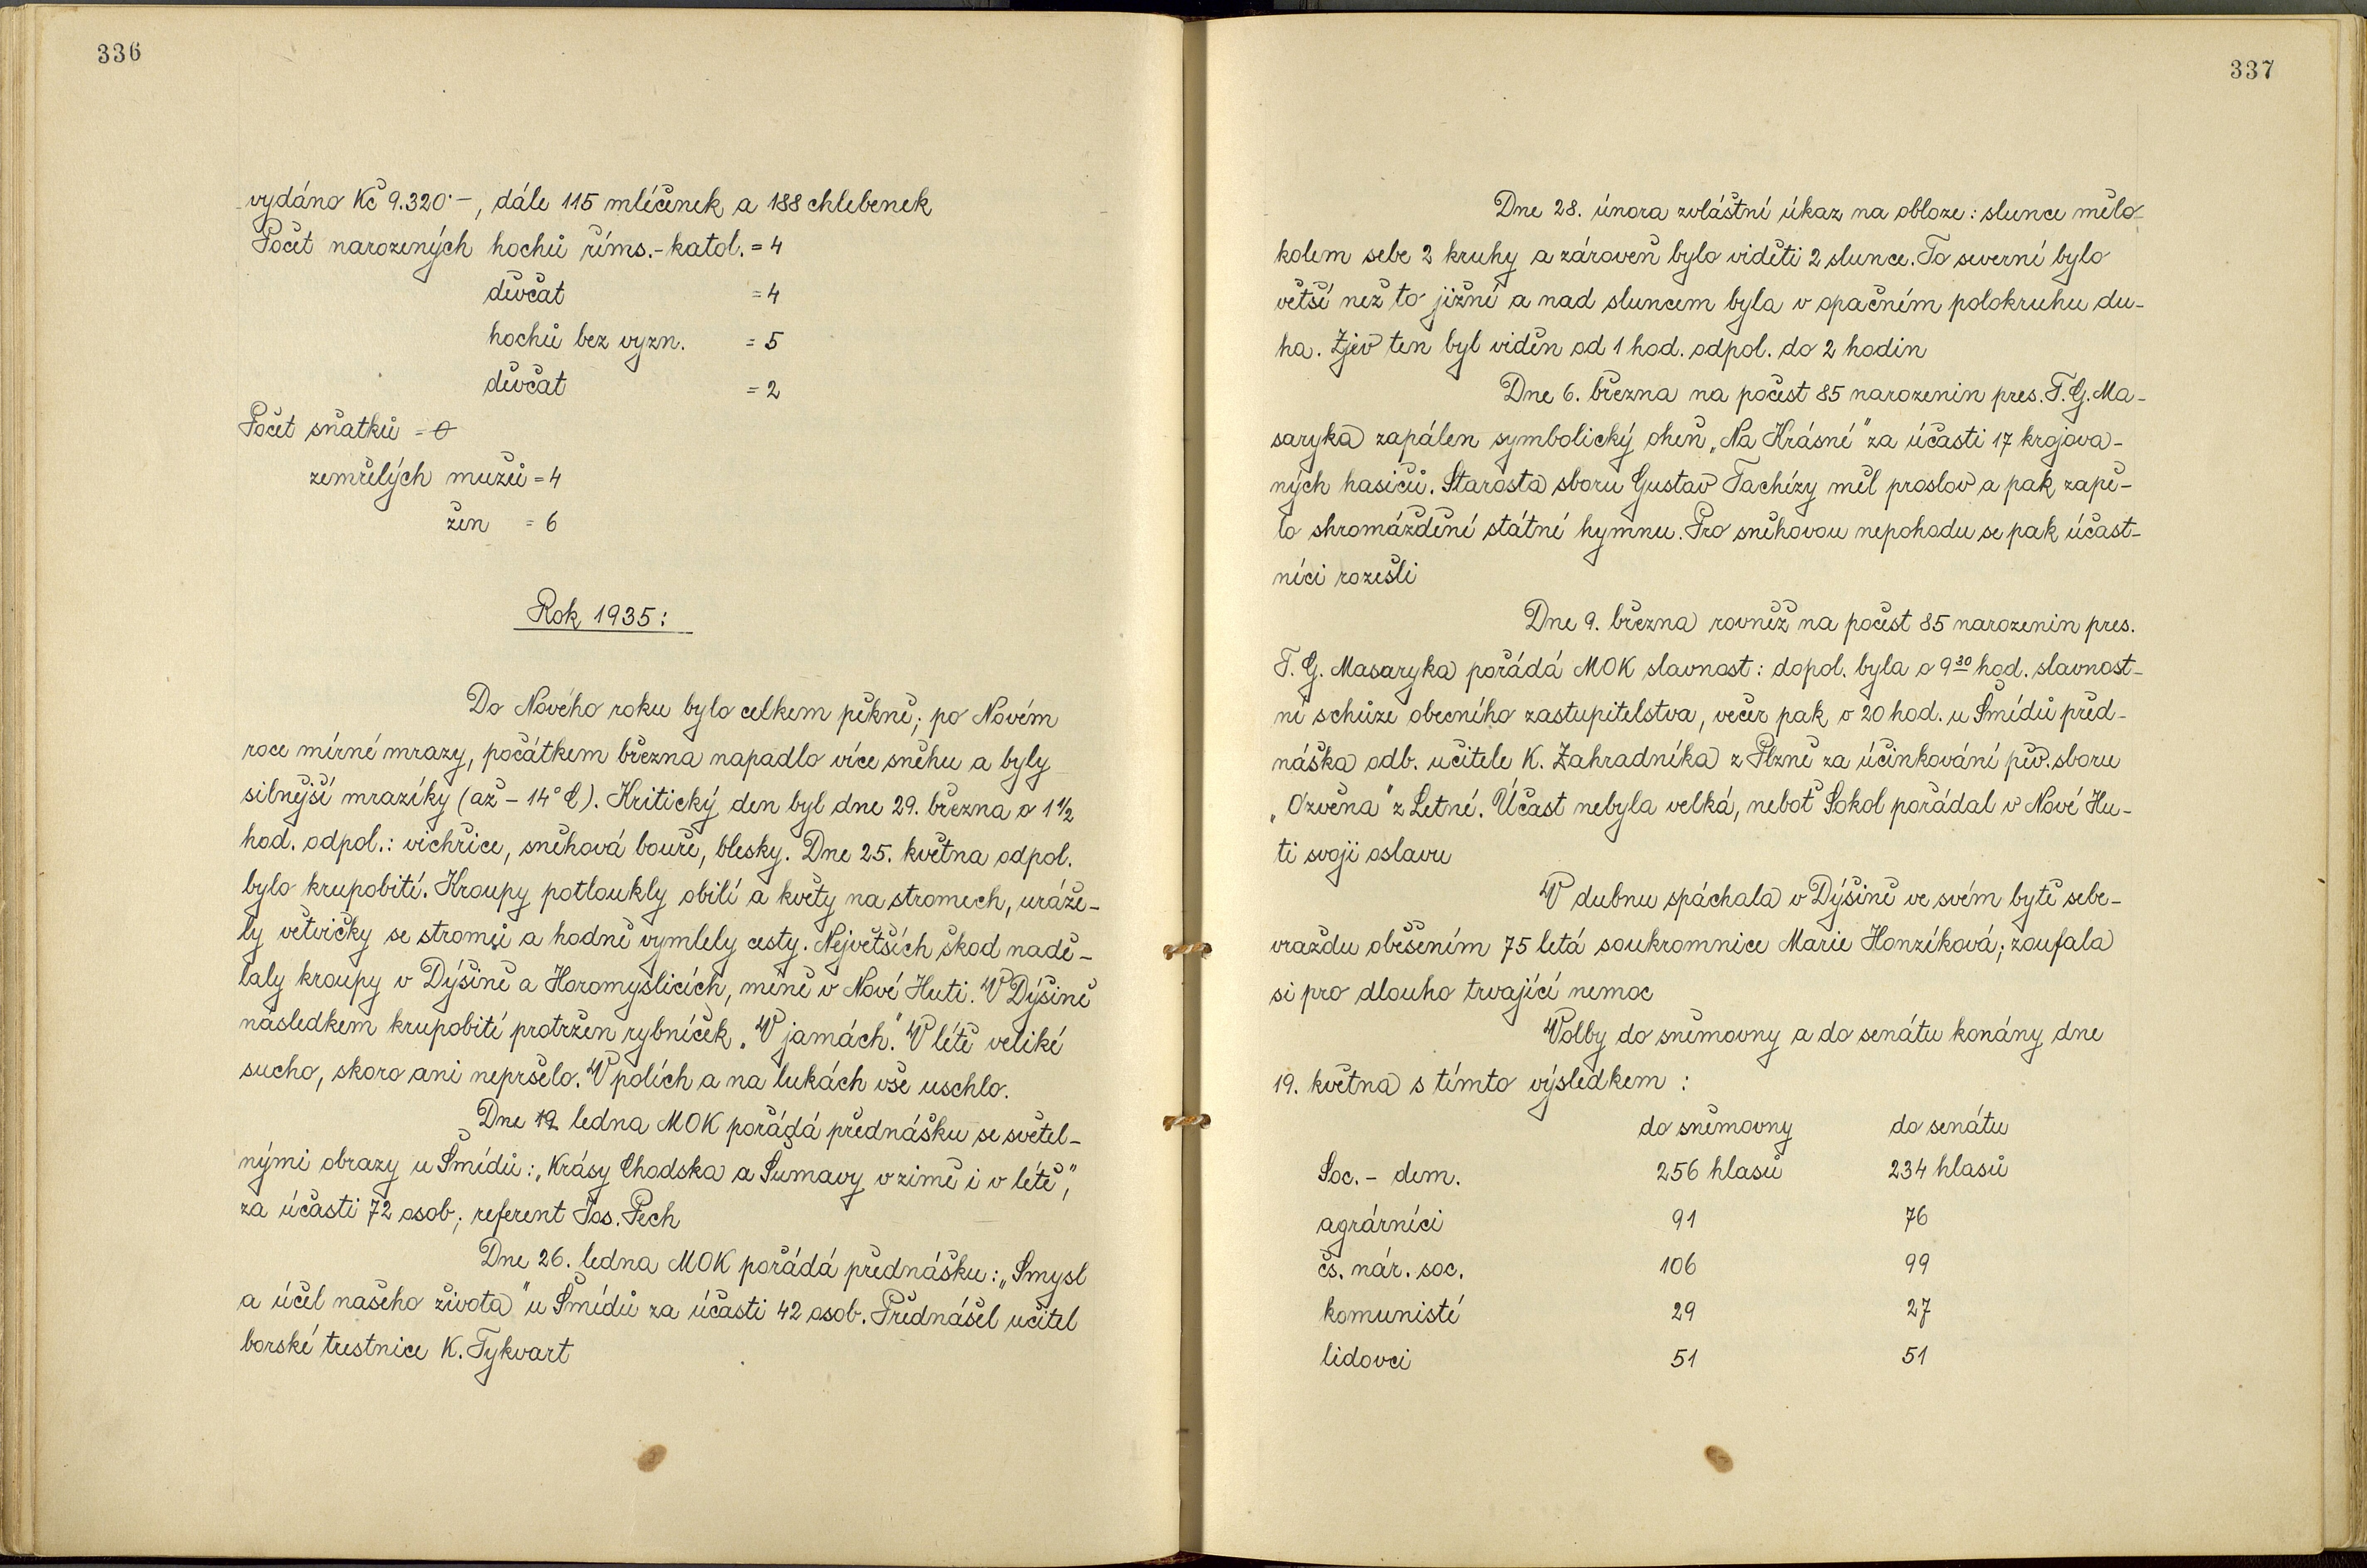 336
vydáno Kč 9.320·–, dále 115 mléčenek a 188 chlebenek
Počet narozených hochů řims.-katol. = 4
děvčat = 4
hochů bez vyzn. = 5
děvčat = 2
Počet sňatků = 0
zemřelých mužů = 4
žen = 6
Rok 1935:
Do Nového roku bylo celkem pěkně; po Novém
roce mírné mrazy, počátkem března napadlo více sněhu a byly
silnější mrazíky (až – 14° C). Kritický den byl dne 29. března o 1 ½
hod. odpol.: vichřice, sněhová bouře, blesky. Dne 25. května odpol.
bylo krupobití. Kroupy potloukly obilí a květy na stromech, uráže-
ly větvičky se stromů a hodně vymlely cesty. Největších škod nadě-
laly kroupy v Dýšině a Horomyslicích, méně v Nové Huti. V Dýšině
následkem krupobití protržen rybníček „V jamách." V létě veliké
sucho, skoro ani nepršelo. V polích a na lukách vše uschlo.
Dne 12 ledna MOK pořádá přednášku se světel-
nými obrazy u Šmídů: „Krásy Chodska a Šumavy v zimě i v létě",
za účasti 72 osob; referent Jos. Pech
Dne 26. ledna MOK pořádá přednášku: „Smysl
a účel našeho života" u Šmídů za účasti 42 osob. Přednášel učitel
borské trestnice K. Tykvart
337
Dne 28. února zvláštní úkaz na obloze: slunce mělo
kolem sebe 2 kruhy a zároveň bylo viděti 2 slunce. To severní bylo
větší než to jižní a nad sluncem byla v opačném polokruhu du-
ha. Zjev ten byl viděn od 1 hod. odpol. do 2 hodin
Dne 6. března na počest 85 narozenin pres. T. G. Ma-
saryka zapálen symbolický oheň „Na Krásné" za účasti 17 krojova-
ných hasičů. Starosta sboru Gustav Tachézy měl proslov a pak zapě-
lo shromáždění státní hymnu. Pro sněhovou nepohodu se pak účast-
níci rozešli
Dne 9. března rovněž na počest 85 narozenin pres.
T. G. Masaryka pořádá MOK slavnost: dopol. byla o 9 30 hod. slavnost-
ní schůze obecního zastupitelstva, večer pak o 20 hod. u Šmídů před-
náška odb. učitele K. Zahradníka z Plzně za účinkování pěv. sboru
„Ozvěna" z Letné. Účast nebyla velká, neboť Sokol pořádal v Nové Hu-
ti svoji oslavu
V dubnu spáchala v Dýšině ve svém bytě sebe-
vraždu oběšením 75 letá soukromnice Marie Honzíková; zoufala
si pro dlouho trvající nemoc
Volby do sněmovny a do senátu konány dne
19. května s tímto výsledkem :
do sněmovny do senátu
Soc. - dem. 256 hlasů 234 hlasů
agrárníci 91 76
čs. nár. soc. 106 99
komunisté 29 27
lidovci 51 51